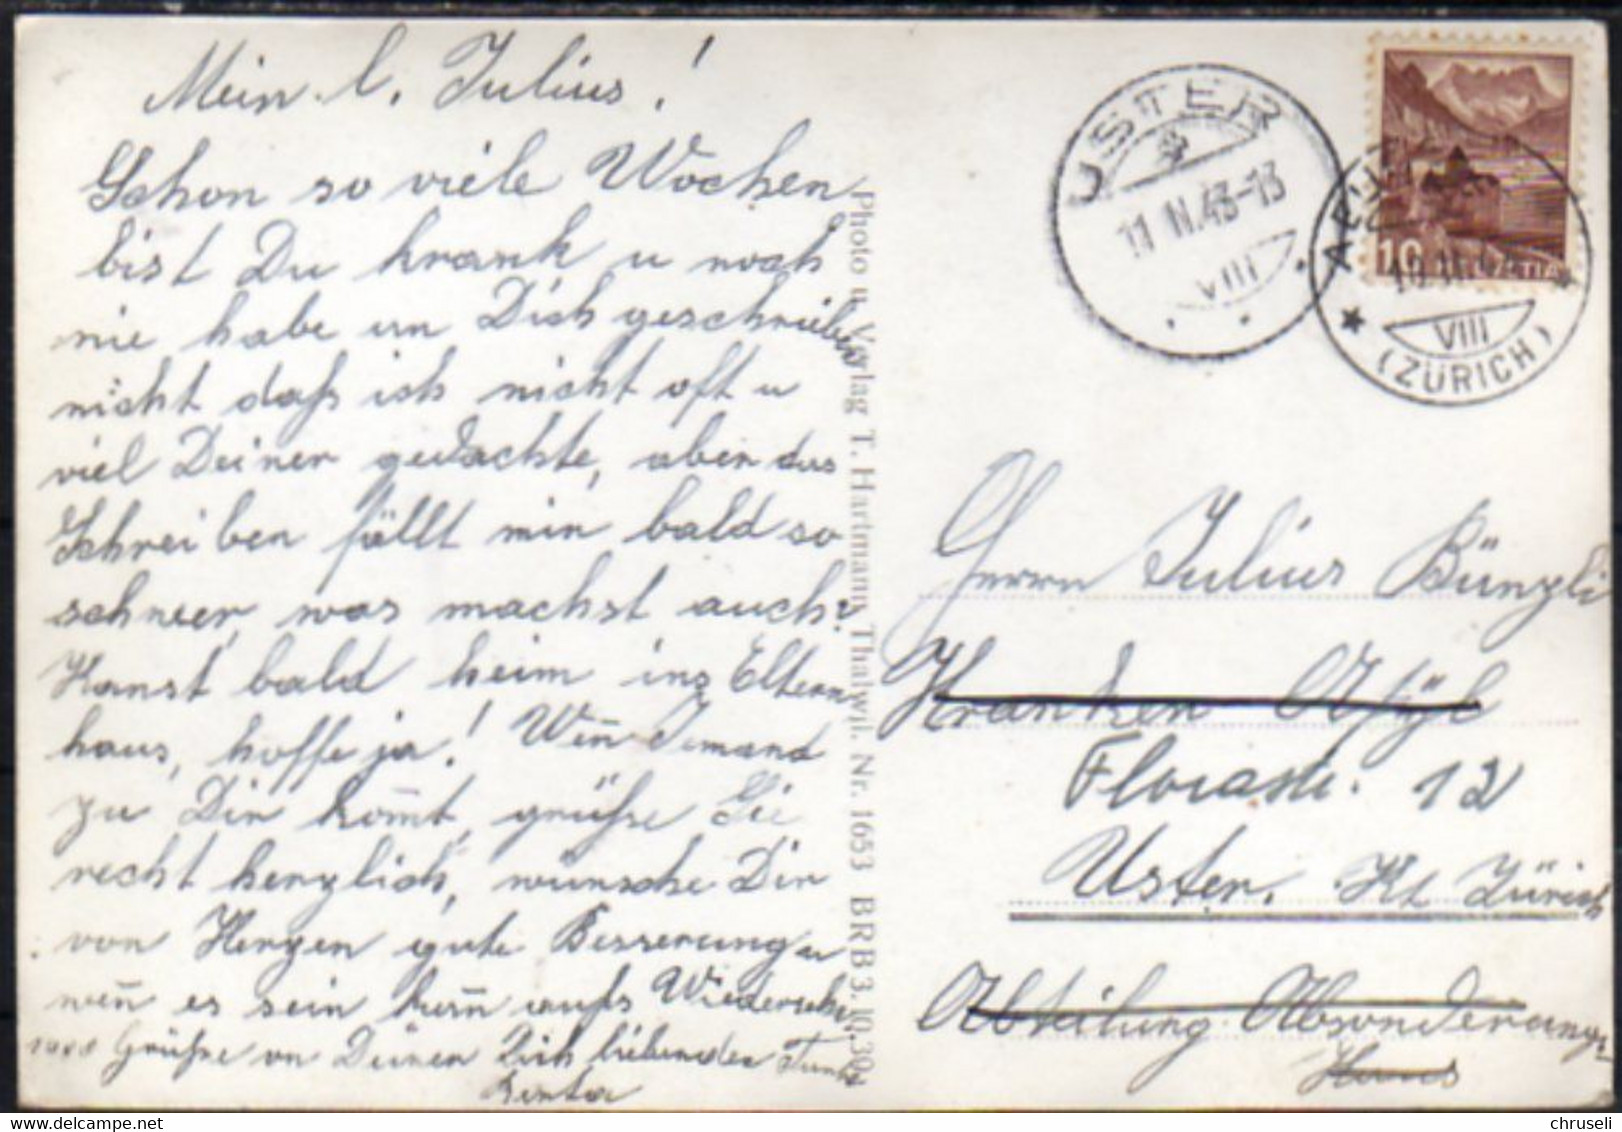 Mein l. Julius!
Schon so viele Wochen
bist Du krank u noch
nie habe an Dich geschrieben
nicht daß ich nicht oft u
viel Deiner gedachte, aber das
Schreiben fällt mir bald so
schwer, was machst auch?
Kanst bald heim ins Eltern
haus, hoffe ja! Weñ Jemand
zu Dir kom̃t, grüße Sie
recht herzlich, wünsche Dir
von Herzen gute Besserung u
weñ es sein kan̄ aufs Wiedersehn.
Grüße von Deiner Dich liebenden Tante
USTER
11.II.43-13
VIII
10
HELVETIA
VIII
(ZÜRICH)
Photo u. Verlag T. Hartmann, Thalwil. Nr. 1653 BRB 3. 10. 39
Herrn Julius Bünzli
Kranken Asyl
Florastr. 12
Uster. Kt Zürich
Abteilung Absonderungs-
Haus
chruseli